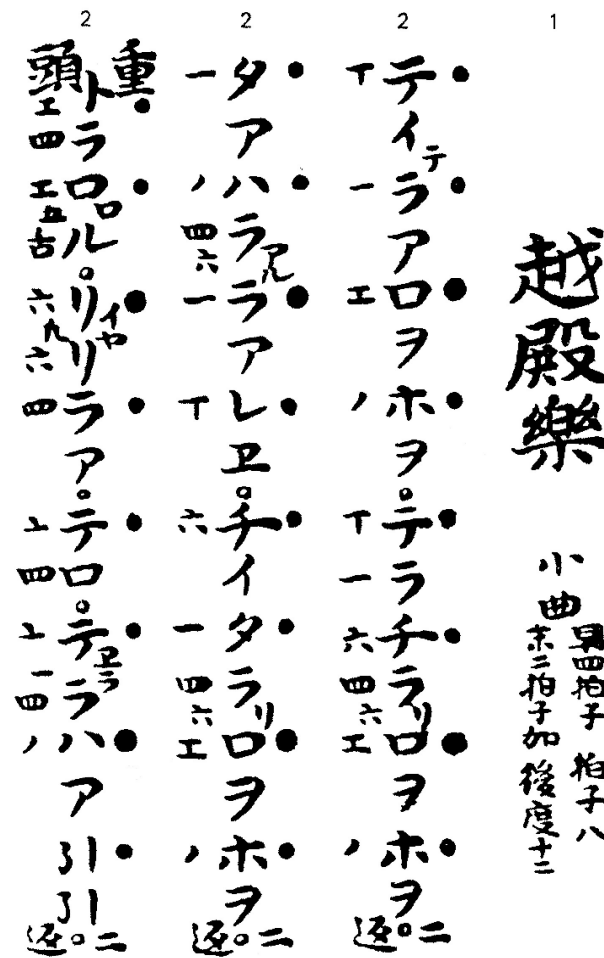 1
越殿樂 小曲 早四拍子 拍子八
末二拍子加 後度十二
2
テイテラアロヲホヲ。テラチラリロヲホヲ 二返
丅一エノ丅一六四六エノ
2
タアハラアルラアレヱ。チイタラリロヲホヲ 二返
一ノ四六一丅六一四六エノ
2
重頭
トラロロル。リイヤリラア。テロ。テヱララハア引引 二返